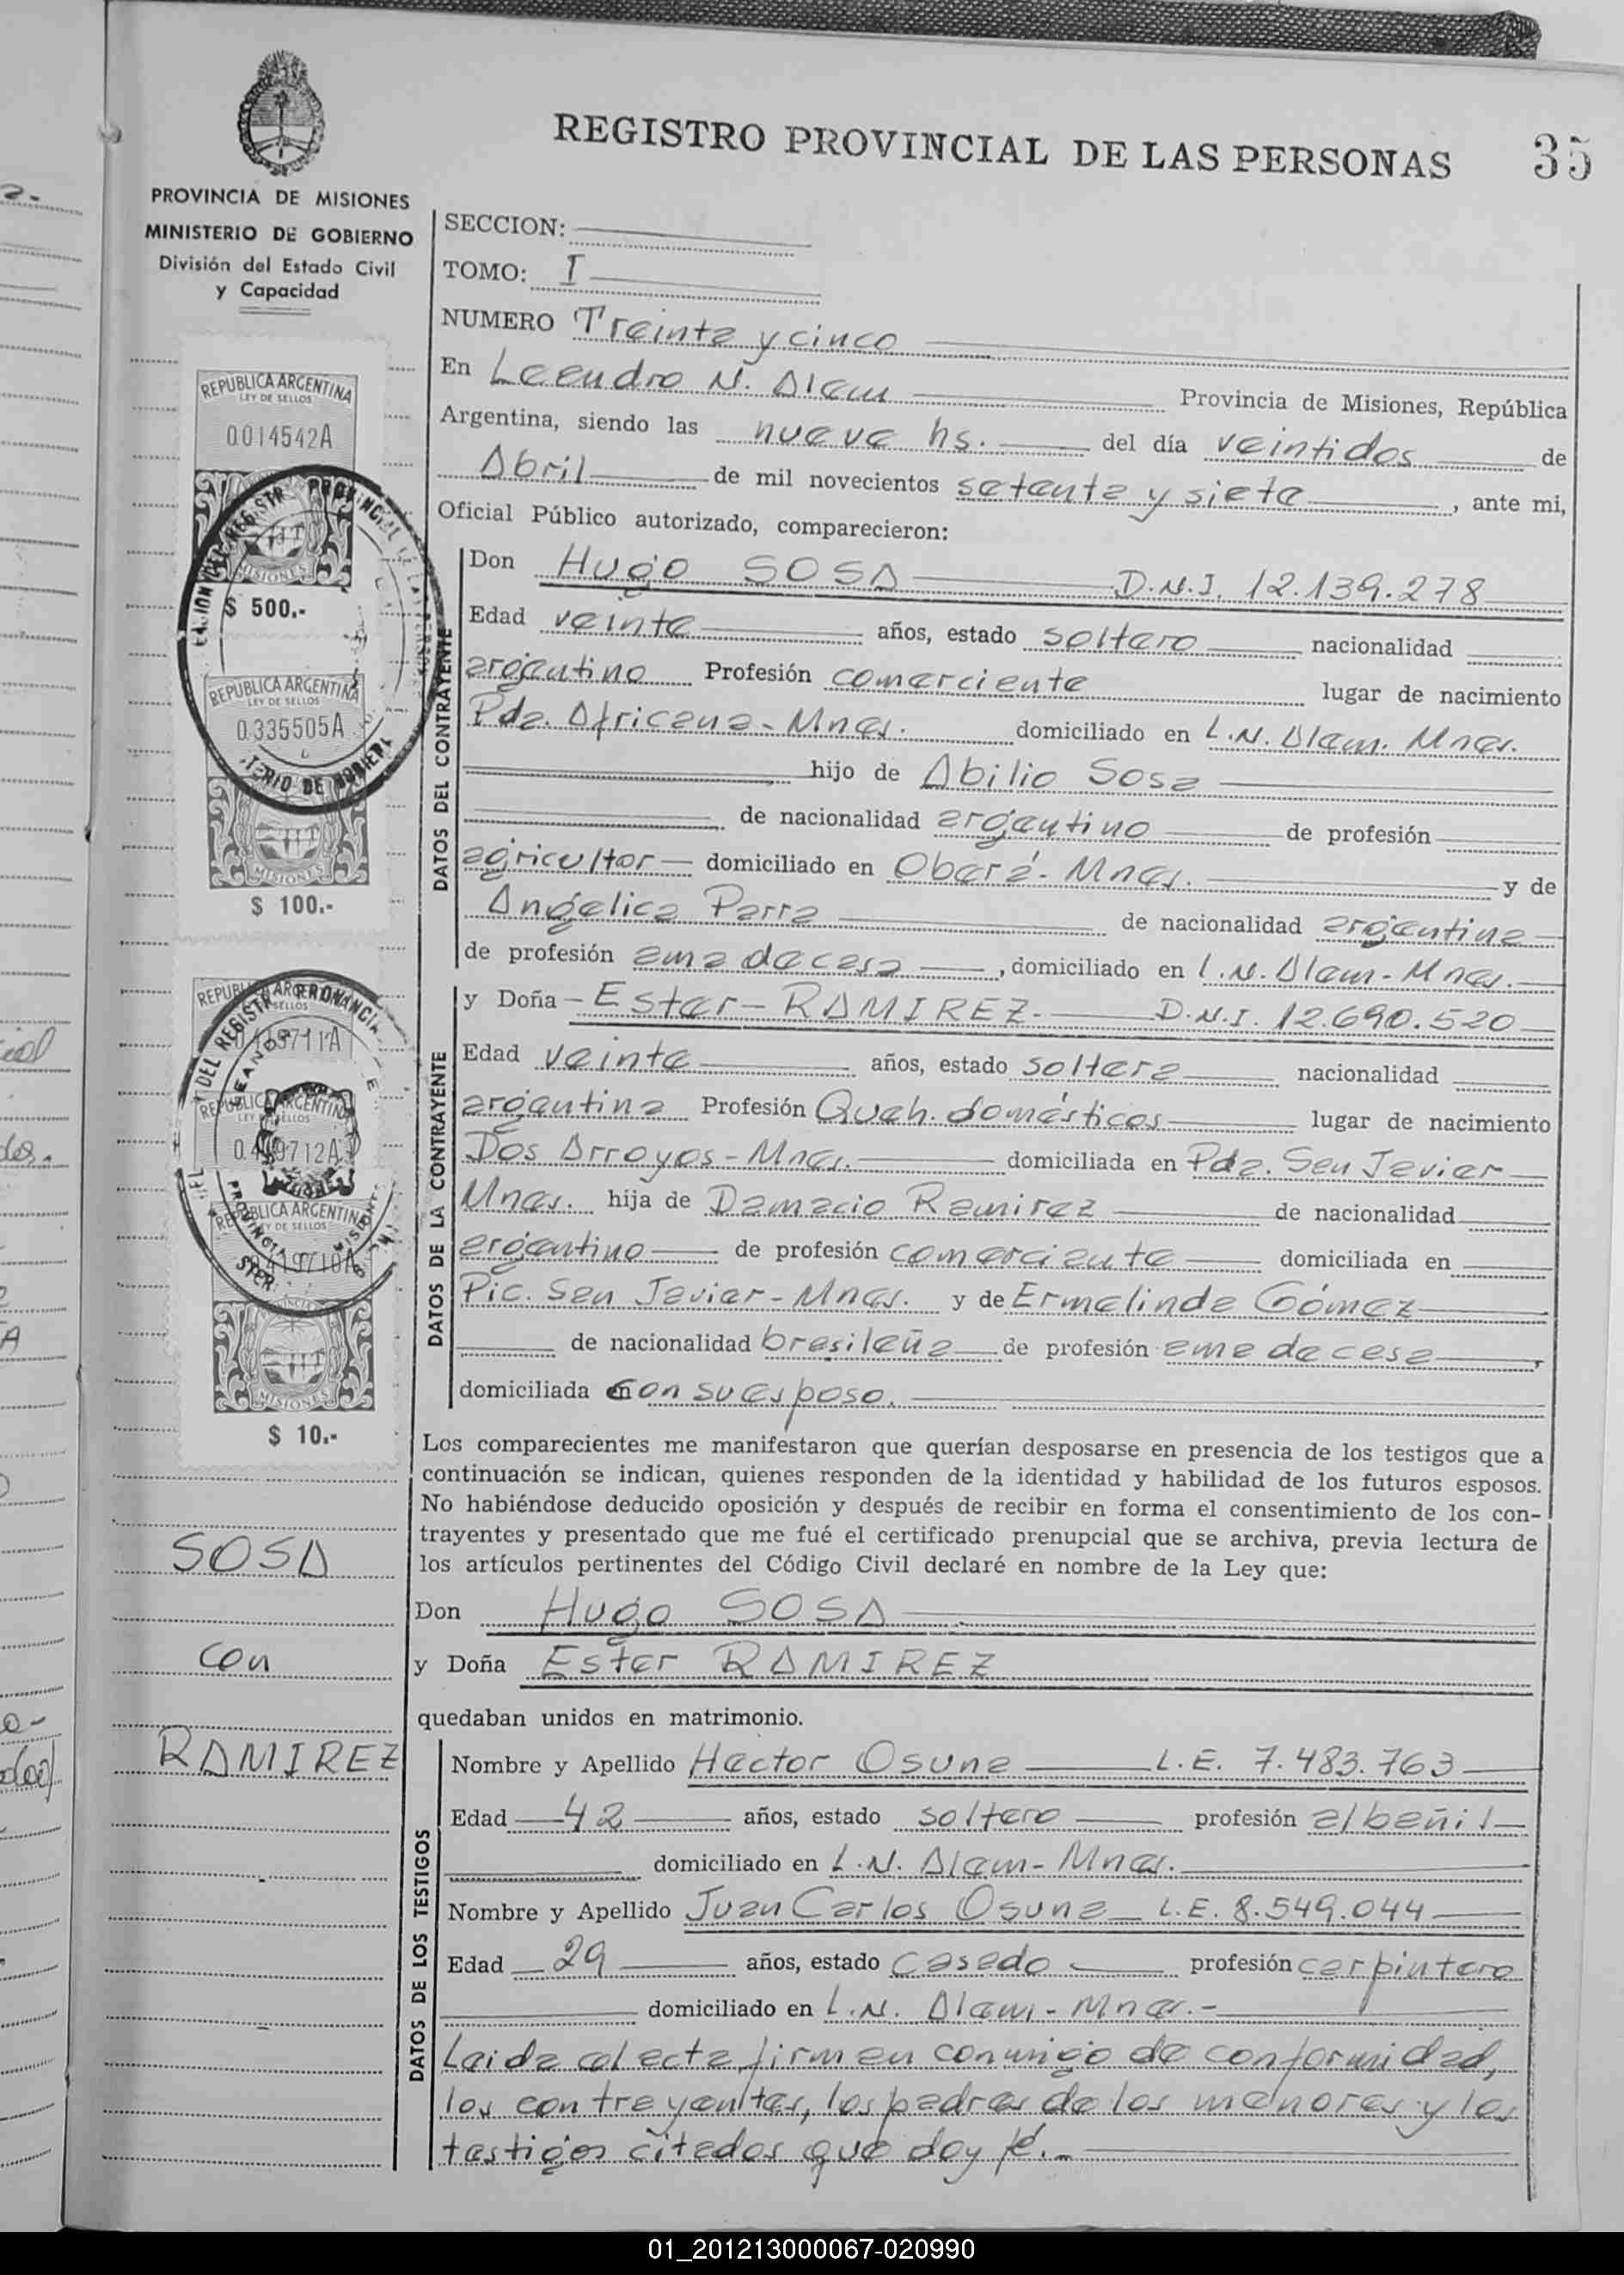 REGISTRO PROVINCIAL DE LAS PERSONAS 35
PROVINCIA DE MISIONES
MINISTERIO DE GOBIERNO
División del Estado Civil
y Capacidad
SECCION:
TOMO: I
NUMERO Treinta y cinco
En Leandro N. Alem Provincia de Misiones, República
Argentina, siendo las nueve hs. del día veintidos de
Abril de mil novecientos setenta y siete, ante mi,
Oficial Público autorizado, comparecieron:
DATOS DEL CONTRAYENTE
Don Hugo SOSA D.N.I. 12.139.278
Edad veinte años, estado soltero nacionalidad
argentino Profesión comerciante lugar de nacimiento
Pda. Africana - Mnes. domiciliado en L.N. Alem. Mnes.
hijo de Abilio Sosa
de nacionalidad argentino de profesión
agricultor domiciliado en Oberá - Mnes. y de
Angélica Parra de nacionalidad argentina
de profesión ama de casa, domiciliado en L.N. Alem - Mnes.
DATOS DE LA CONTRAYENTE
y Doña - Ester - RAMIREZ. D.N.I. 12.690.520
Edad veinte años, estado soltera nacionalidad
argentina Profesión Queh. domésticos lugar de nacimiento
Dos Arroyos - Mnes. domiciliada en Pda. San Javier
Mnes. hija de Damacio Ramirez de nacionalidad
argentino de profesión comerciante domiciliada en
Pic. San Javier - Mnes. y de Ermelinda Gómez
de nacionalidad brasileña de profesión ama de casa,
domiciliada en con su esposo.
Los comparecientes me manifestaron que querían desposarse en presencia de los testigos que a
continuación se indican, quienes responden de la identidad y habilidad de los futuros esposos.
No habiéndose deducido oposición y después de recibir en forma el consentimiento de los con-
trayentes y presentado que me fué el certificado prenupcial que se archiva, previa lectura de
los artículos pertinentes del Código Civil declaré en nombre de la Ley que:
Don Hugo SOSA
y Doña Ester RAMIREZ
quedaban unidos en matrimonio.
DATOS DE LOS TESTIGOS
Nombre y Apellido Hector Osuna L.E. 7.483.763
Edad 42 años, estado soltero profesión albañil
domiciliado en L.N. Alem - Mnes.
Nombre y Apellido Juan Carlos Osuna L.E. 8.549.044
Edad 29 años, estado casado profesión carpintero
domiciliado en L.N. Alem - Mnes. -
Leida el acta firman conmigo de conformidad,
los contrayentes, los padres de los menores y los
testigos citados que doy fé. -
REPUBLICA ARGENTINA
LEY DE SELLOS
0014542A
MISIONES
$ 500.-
REPUBLICA ARGENTINA
LEY DE SELLOS
0335505A
MISIONES
$ 100.-
REPUBLICA ARGENTINA
REPUBLICA ARGENTINA
REPUBLICA ARGENTINA
LEY DE SELLOS
MISIONES
$ 10.-
SOSA
con
RAMIREZ
01_201213000067-020990